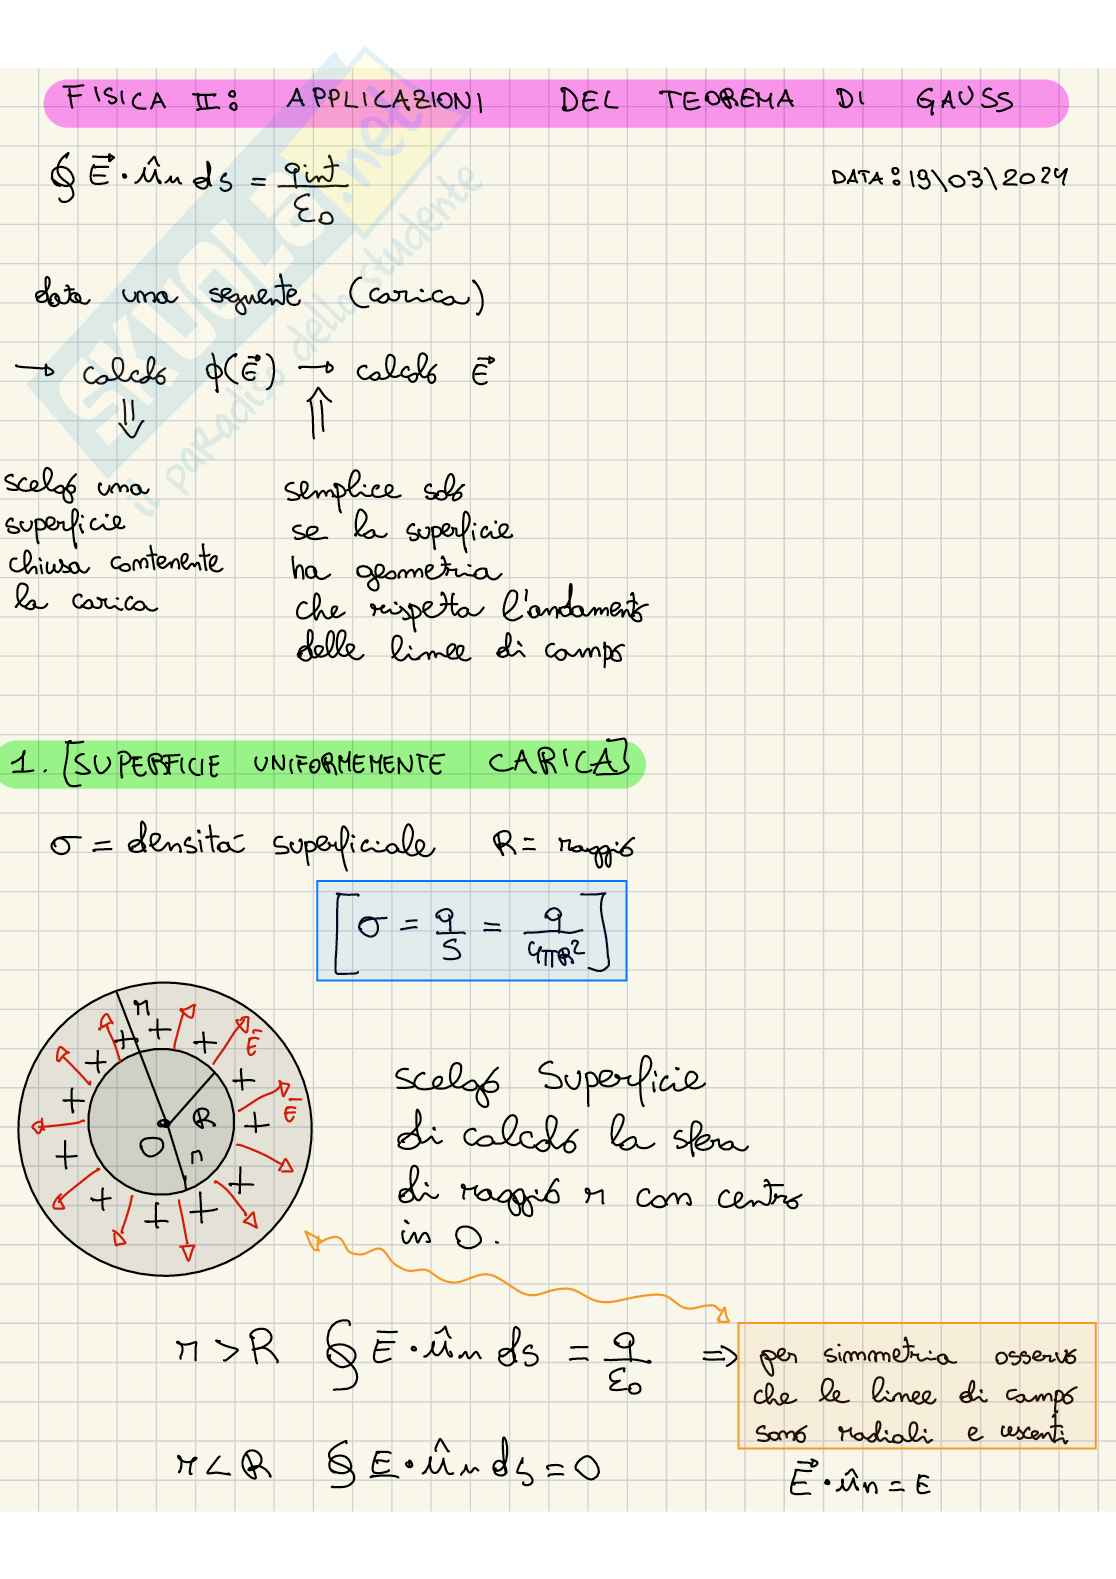 FISICA II: APPLICAZIONI DEL TEOREMA DI GAUSS
∮ E⃗ · ûn ds = qint / ε0
DATA: 19\03\2024
data una seguente (carica)
→ calcolo ϕ(E⃗) → calcolo E⃗
⇓ ⇑
scelgo una
superficie
chiusa contenente
la carica
semplice solo
se la superficie
ha geometria
che rispetta l'andamento
delle linee di campo
1. [SUPERFICIE UNIFORMEMENTE CARICA]
σ = densitá superficiale R = raggio
[σ = q/S = q/4πR²]
r
E̅
E̅
R
O
r
scelgo Superficie
di calcolo la sfera
di raggio r con centro
in O.
r > R ∮ E̅ · ûn ds = q/ε0 ⇒
per simmetria osservo
che le linee di campo
sono radiali e uscenti
r < R ∮ E · ûn ds = 0
E⃗ · ûn = E
SKUOLA.net
il paradiso dello studente